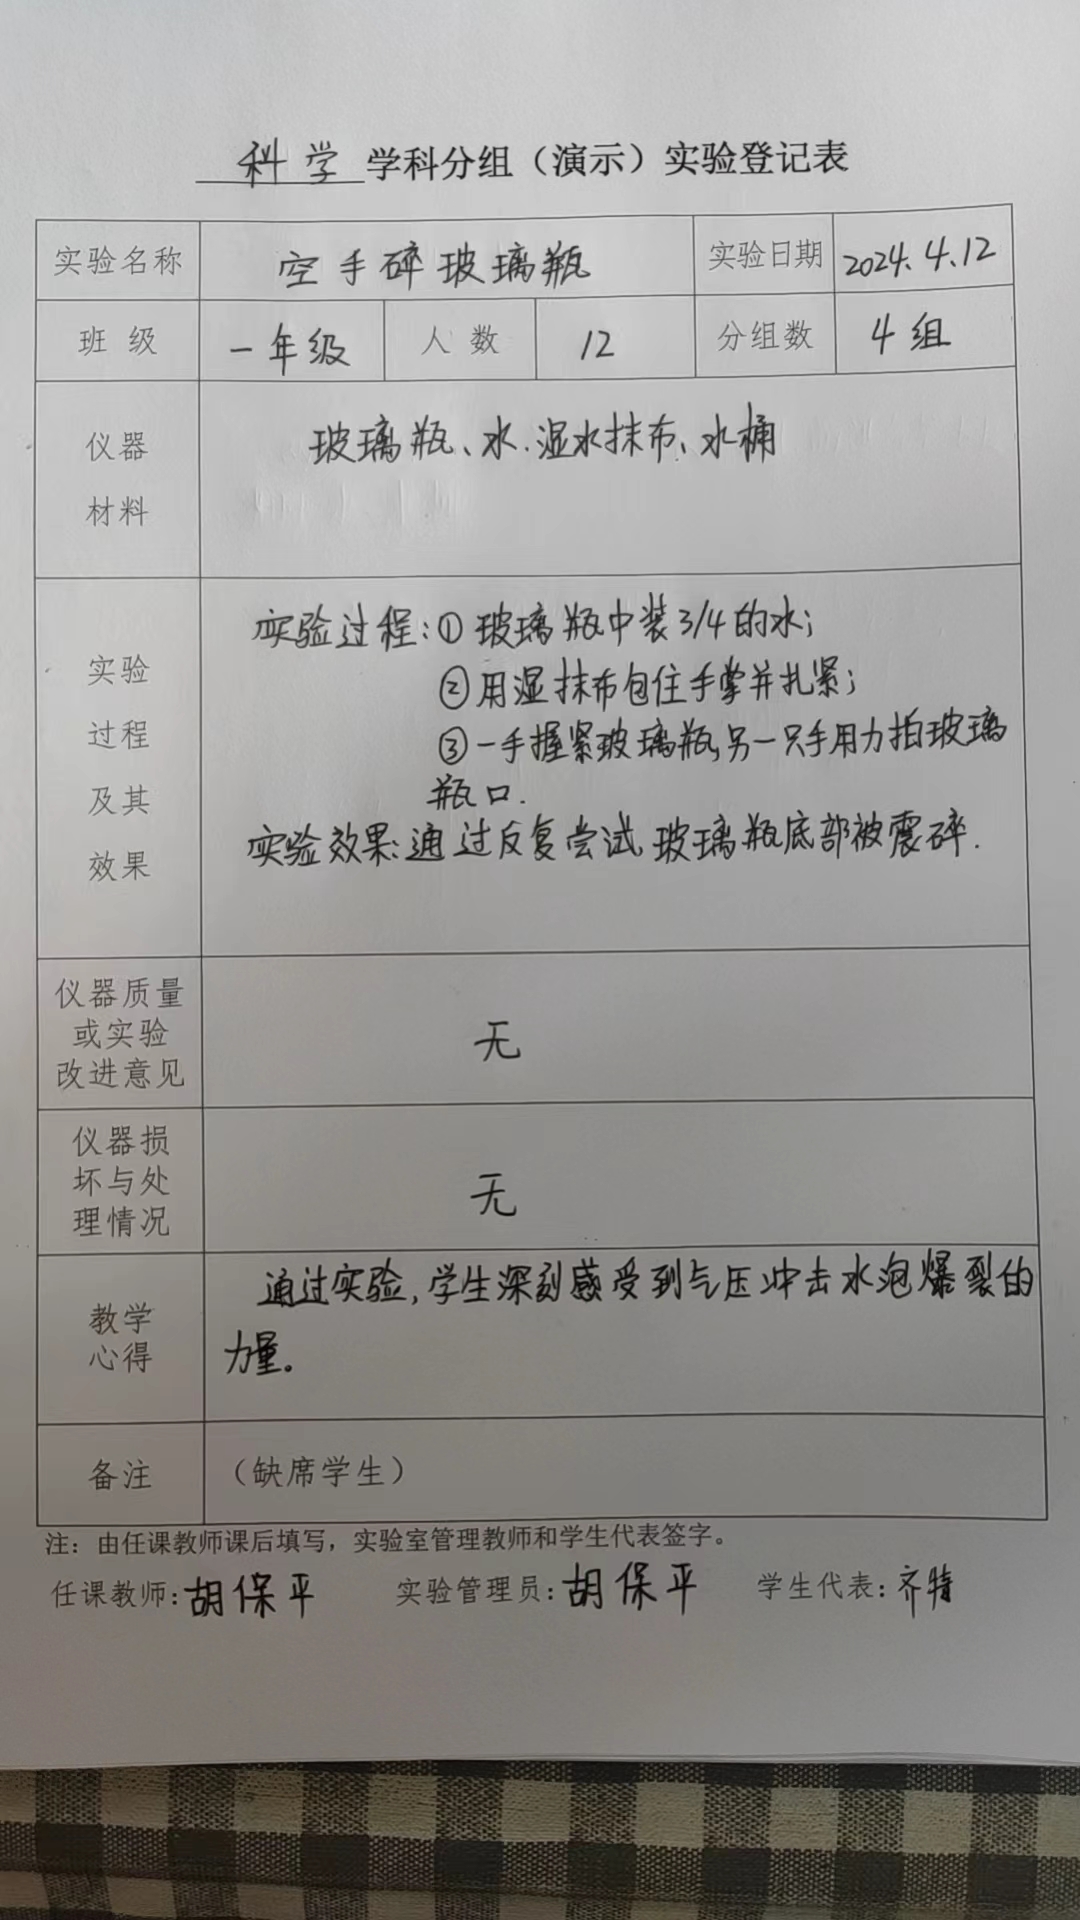 科学 学科分组（演示）实验登记表
实验名称 空手碎玻璃瓶 实验日期 2024.4.12
班 级 一年级 人 数 12 分组数 4组
仪器
材料
玻璃瓶、水、湿水抹布、水桶
实验
过程
及其
效果
实验过程:①玻璃瓶中装3/4的水;
②用湿抹布包住手掌并扎紧;
③一手握紧玻璃瓶,另一只手用力拍玻璃
瓶口.
实验效果:通过反复尝试,玻璃瓶底部被震碎.
仪器质量
或实验
改进意见
无
仪器损
坏与处
理情况
无
教学
心得
通过实验,学生深刻感受到气压冲击水泡爆裂的
力量。
备注 （缺席学生）
注：由任课教师课后填写，实验室管理教师和学生代表签字。
任课教师:胡保平 实验管理员:胡保平 学生代表:齐特